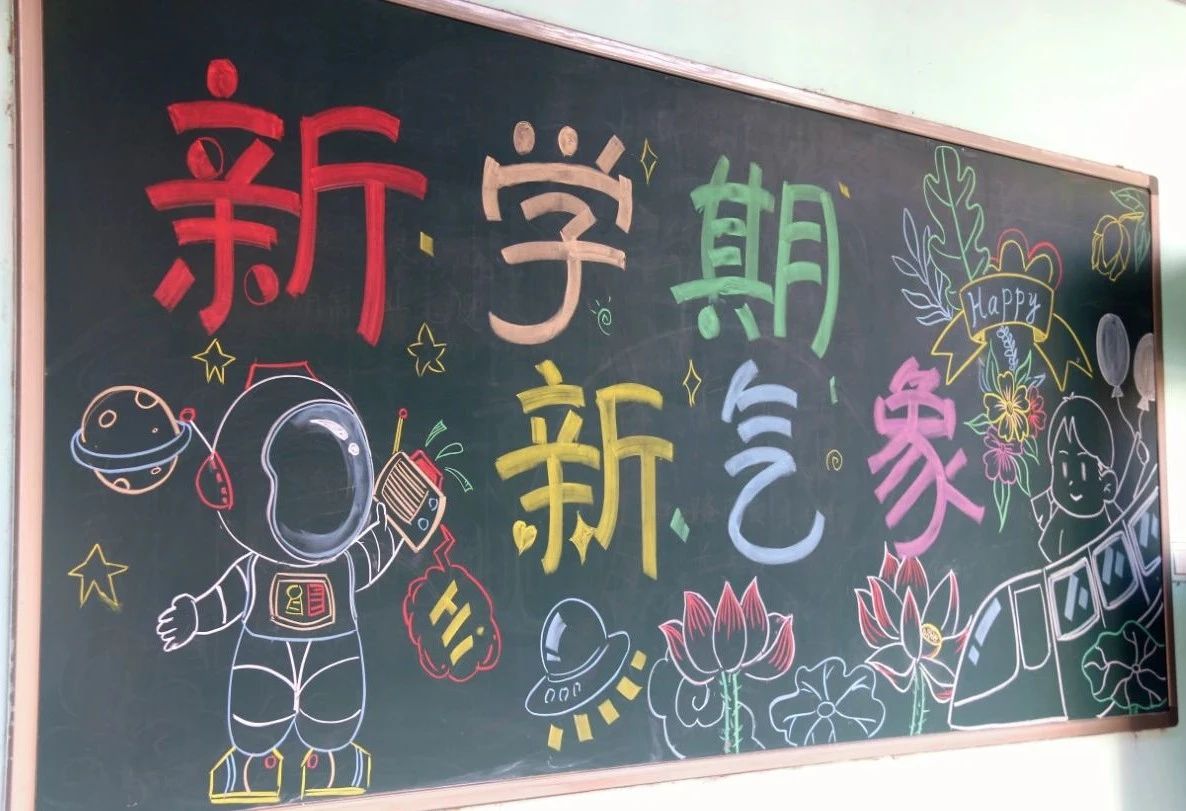 新学期
新气象
Happy
Hi